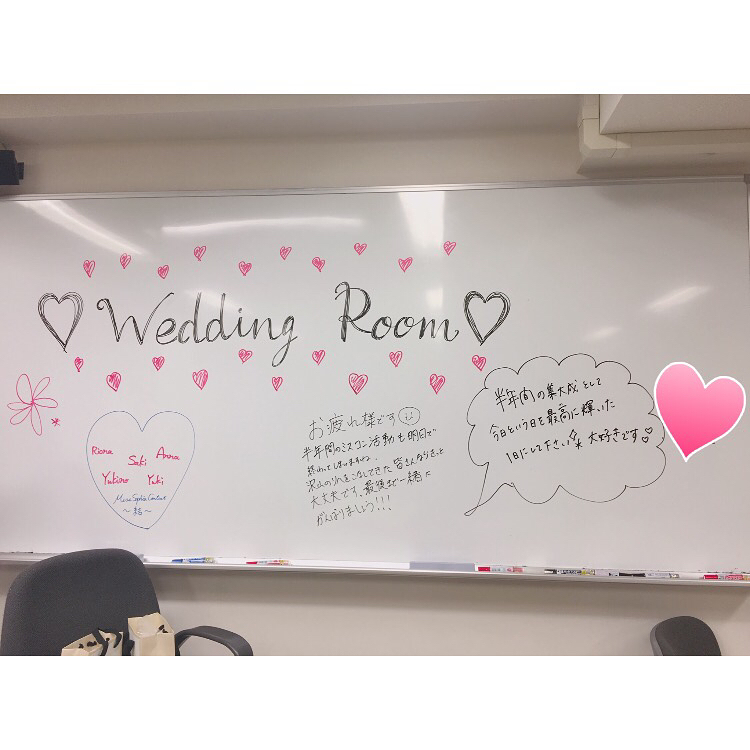 Wedding Room
Riona
Saki Anna
Yukino Yuki
Miss Sophia Contest
〜結〜
お疲れ様です
半年間のミスコン活動も明日で
終わってしまいますね。
沢山のりんをこなしてきた皆さんならきっと
大丈夫です。最後まで一緒に
がんばりましょう!!!
半年間の集大成として
今日という日を最高に輝いた
1日にして下さい 大好きです